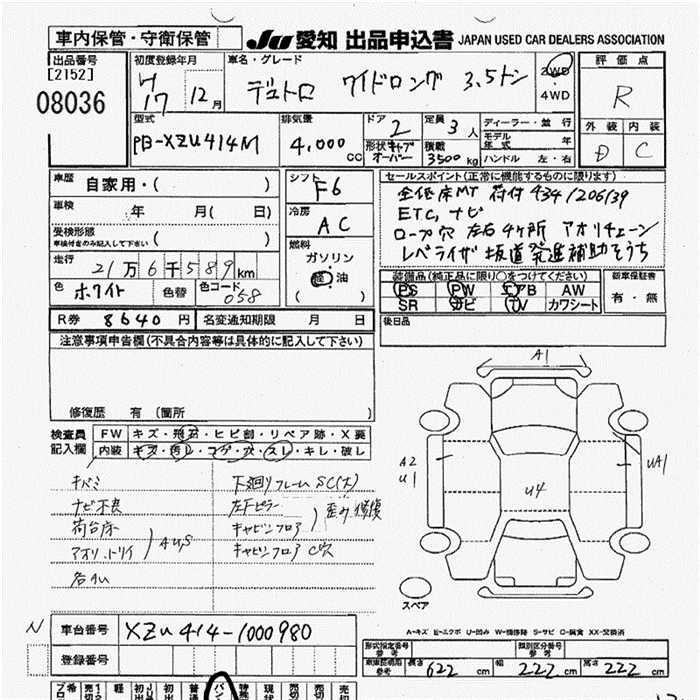 車内保管・守衛保管
JU 愛知 出品申込書 JAPAN USED CAR DEALERS ASSOCIATION
出品番号
[2152]
08036
初度登録年月
H
17年 12月
車名・グレード
デュトロ ワイドロング 3.5トン
2WD
4WD
評価点
R
外装 内装
D C
型式
PB-XZU414M
排気量
4,000 cc
ドア
2
定員
3人
形状 キャブオーバー
積載
3500kg
ディーラー・並行
モデル年式 年
ハンドル 左・右
車歴
自家用・( )
車検
年 月( 日)
受検形態
車検付きのみ記入して下さい ( )
走行
21万6千589km
色
ホワイト
色替
色コード
058
シフト
F6
冷房
AC
燃料
ガソリン
軽油
( )
セールスポイント(正常に機能するものに限ります)
全低床MT 荷付 434/206/39
ETC,ナビ
ロープ穴 左右4ヶ所 アオリチェーン
レベライザ 坂道発進補助そうち
装備品(純正品に限り○をつけてください)
PS PW エアB AW
SR ナビ TV カワシート
新車保証書
有・無
R券 8640円 名変通知期限 月 日
後日品
注意事項申告欄(不具合内容等は具体的に記入して下さい)
修復歴 有 (箇所 )
検査員
記入欄
FW キズ・飛石・ヒビ割・リペア跡・X要
内装 キズ・汚レ・コゲ・穴・スレ・キレ・破レ
キバミ
ナビ不良
荷台床
アオリ、トリイ
AUS
各4U
下廻りフレームSC(大)
左Fピラー
キャビンフロア
歪み修復
キャビンフロア C穴
A1
A2
U1
UA1
U4
スペア
A-キズ E-エクボ U-凹み W-補修跡 S-サビ C-腐食 XX-交換済
N
車台番号 XZU414-1000980
登録番号
形式指定番号
参考
類別区分番号
参考
車庫証明用
参考
長さ 622 cm 幅 222 cm 高さ 222 cm